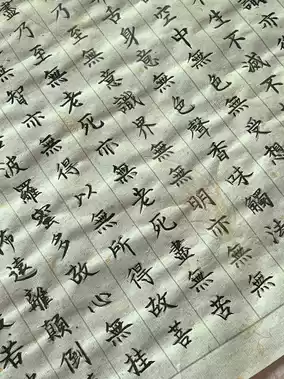 亦
生不滅不
空中無色無受想
舌身意無色聲香味觸法
乃至無意識界無無明亦無無
盡乃至無老死亦無老死盡無苦
智亦無得以無所得故菩
波羅蜜多故心無挂
遠離顛倒
若